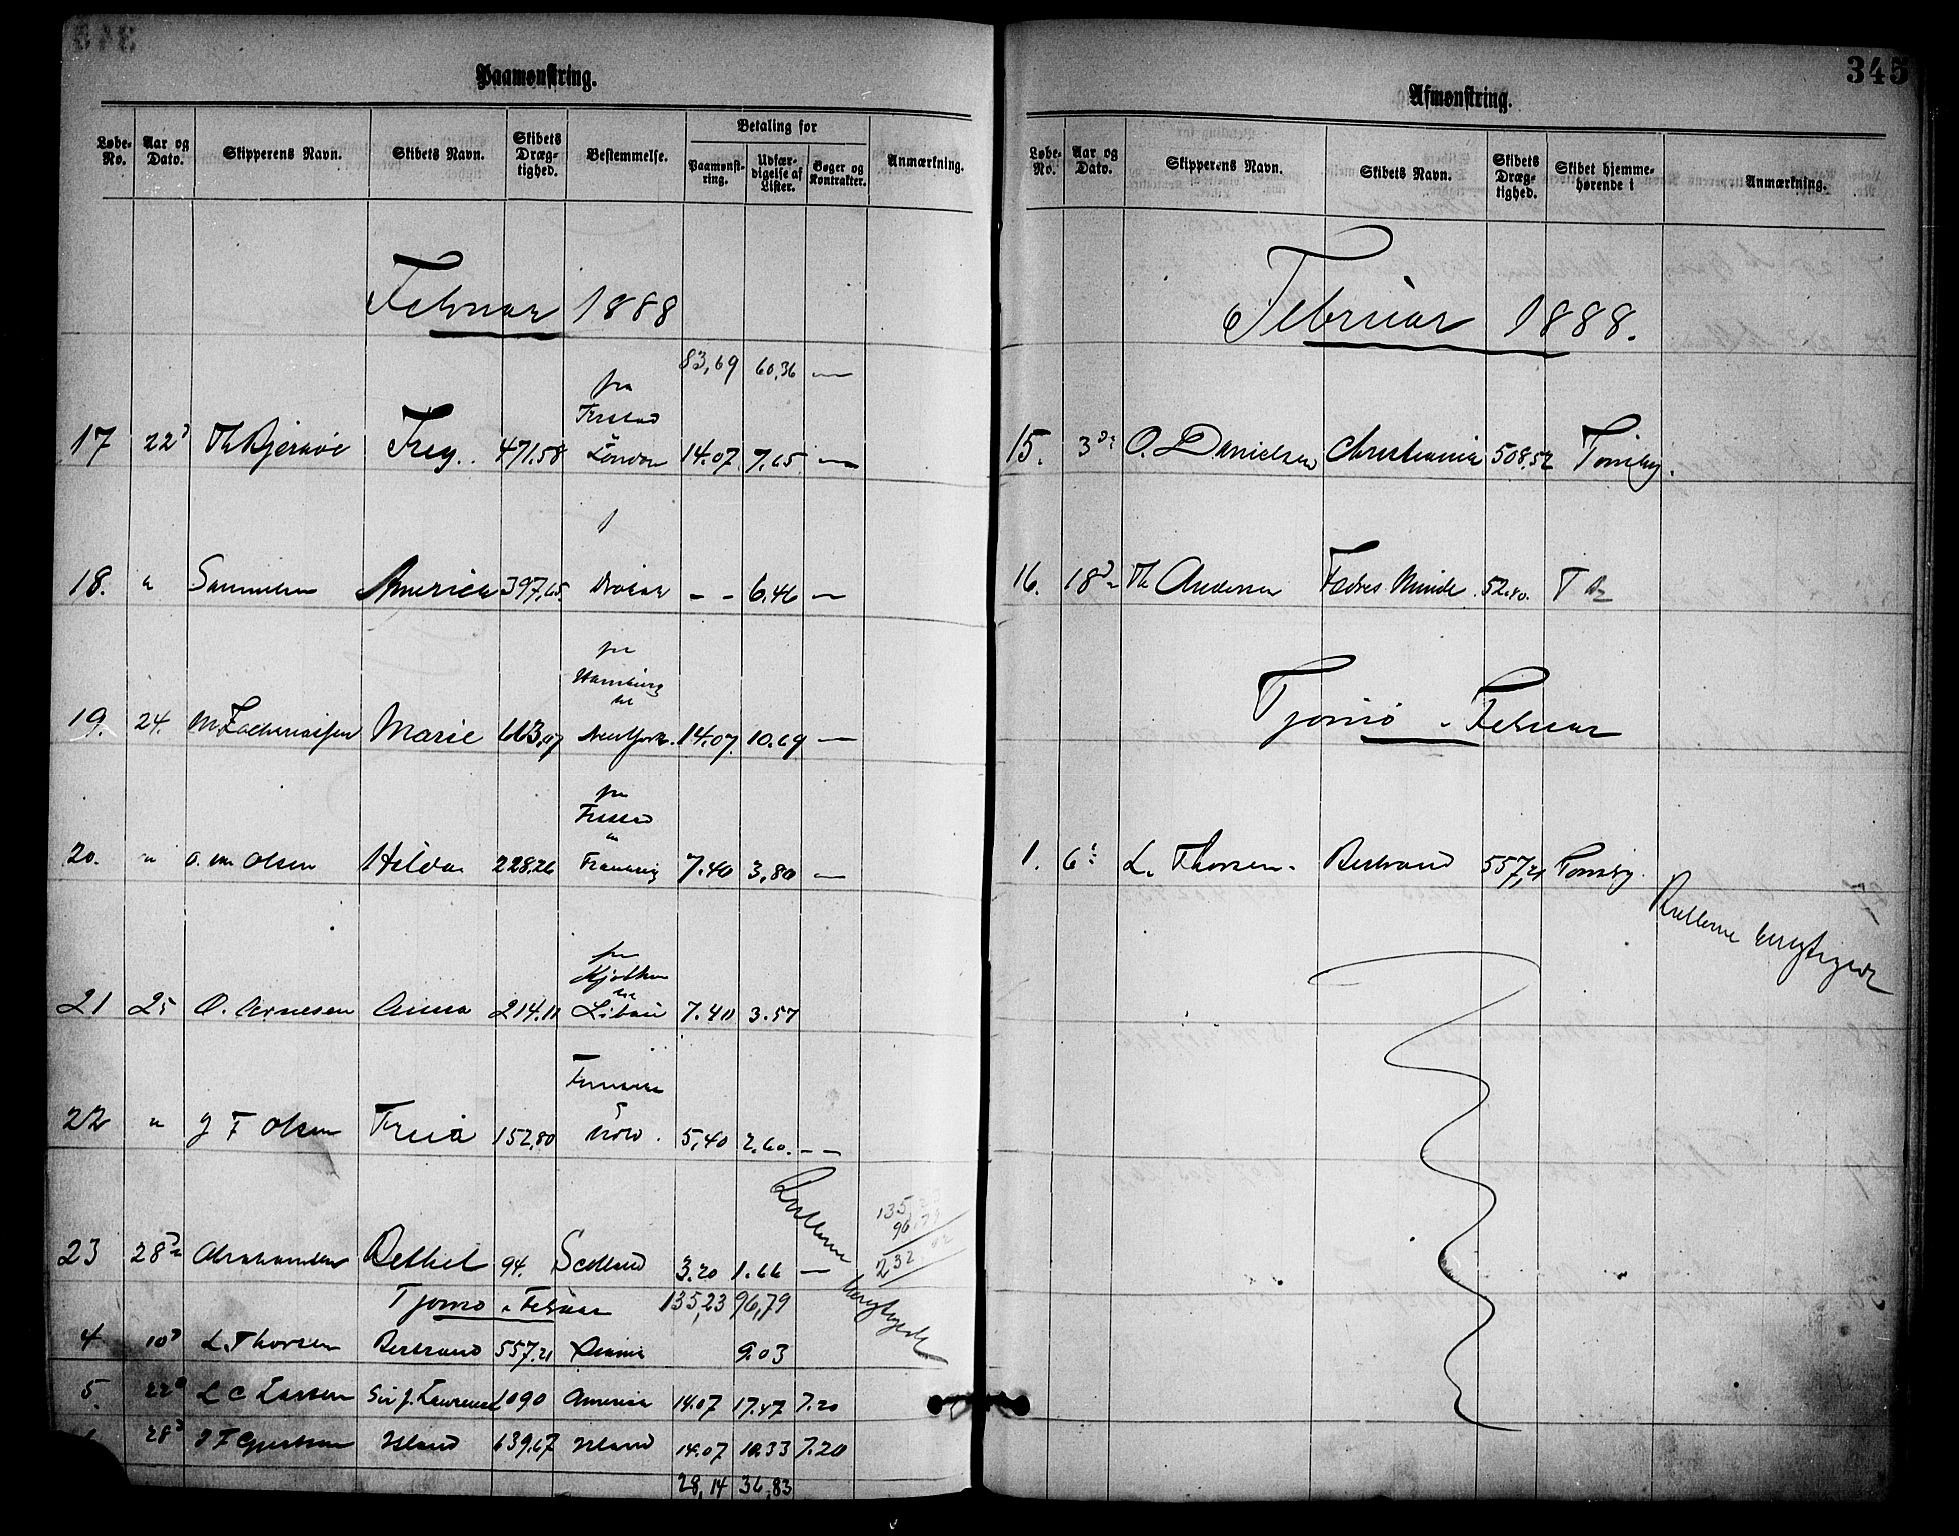 Paamønstring.
Løbe-No. Aar og Dato. Skipperens Navn. Skibets Navn. Skibets Dræg-tighed. Bestemmelse. Betaling for Paamønst-ring. Udfær-digelse af Lister. Bøger og Kontrakter. Anmærkning.
Februar 1888
83,69 60,36 —
fra
17 22 Th Bjerkøe Frey. 471,58 London 14.07 7,65 —
18. " Samuelsen America 397,65 — — 6.46 —
fra
Hamburg
til
19. 24. M Zachariassen Marie 663,07 New York. 14.07. 10.69 —
fra
20. " O. Olsen Hilda 228,26 7.40 3,80 —
fra
til
21 25 O. Arnesen Anna 214.11 Libau 7.40 3.57
22 " J F Olsen Freia 152,80 5,40 2,60. — —
23 28 Abrahamsen Bethel 94. Scotland 3.20 1.66 —
Tjømø Februar 135,23 96,79
Rullerne berigtiget
4 10 L. Thorsen Bertrand 557.21 9.03
5. 22 L C Larsen Sir J. Lawrence 1090 America 14.07 17.47 7.20
28 Island 639.67 Island 14.07 10.33 7.20
28,14 36,83
345
Afmønstring.
Løbe-No. Aar og Dato. Skipperens Navn. Skibets Navn. Skibets Dræg-tighed. Skibet hjemme-hørende i Anmærkning.
Februar 1888.
15. 3 O. Danielsen Christiania 508,52 Tønsberg.
16. 18 Th Andersen Fædres Minde 52.80. T
Tjømø Februar
1. 6 L. Thorsen Bertrand 557,21 Tønsberg.
Rullerne berigtiget